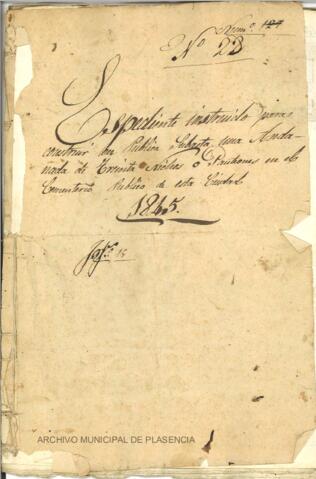 Num.º 124
Nº 22
Expediente instruido para
construir en Publica Subasta una Anda=
nada de Treinta Nichos ó Panteones en el
Cementerio Publico de esta Ciudad
1845.
ARCHIVO MUNICIPAL DE PLASENCIA